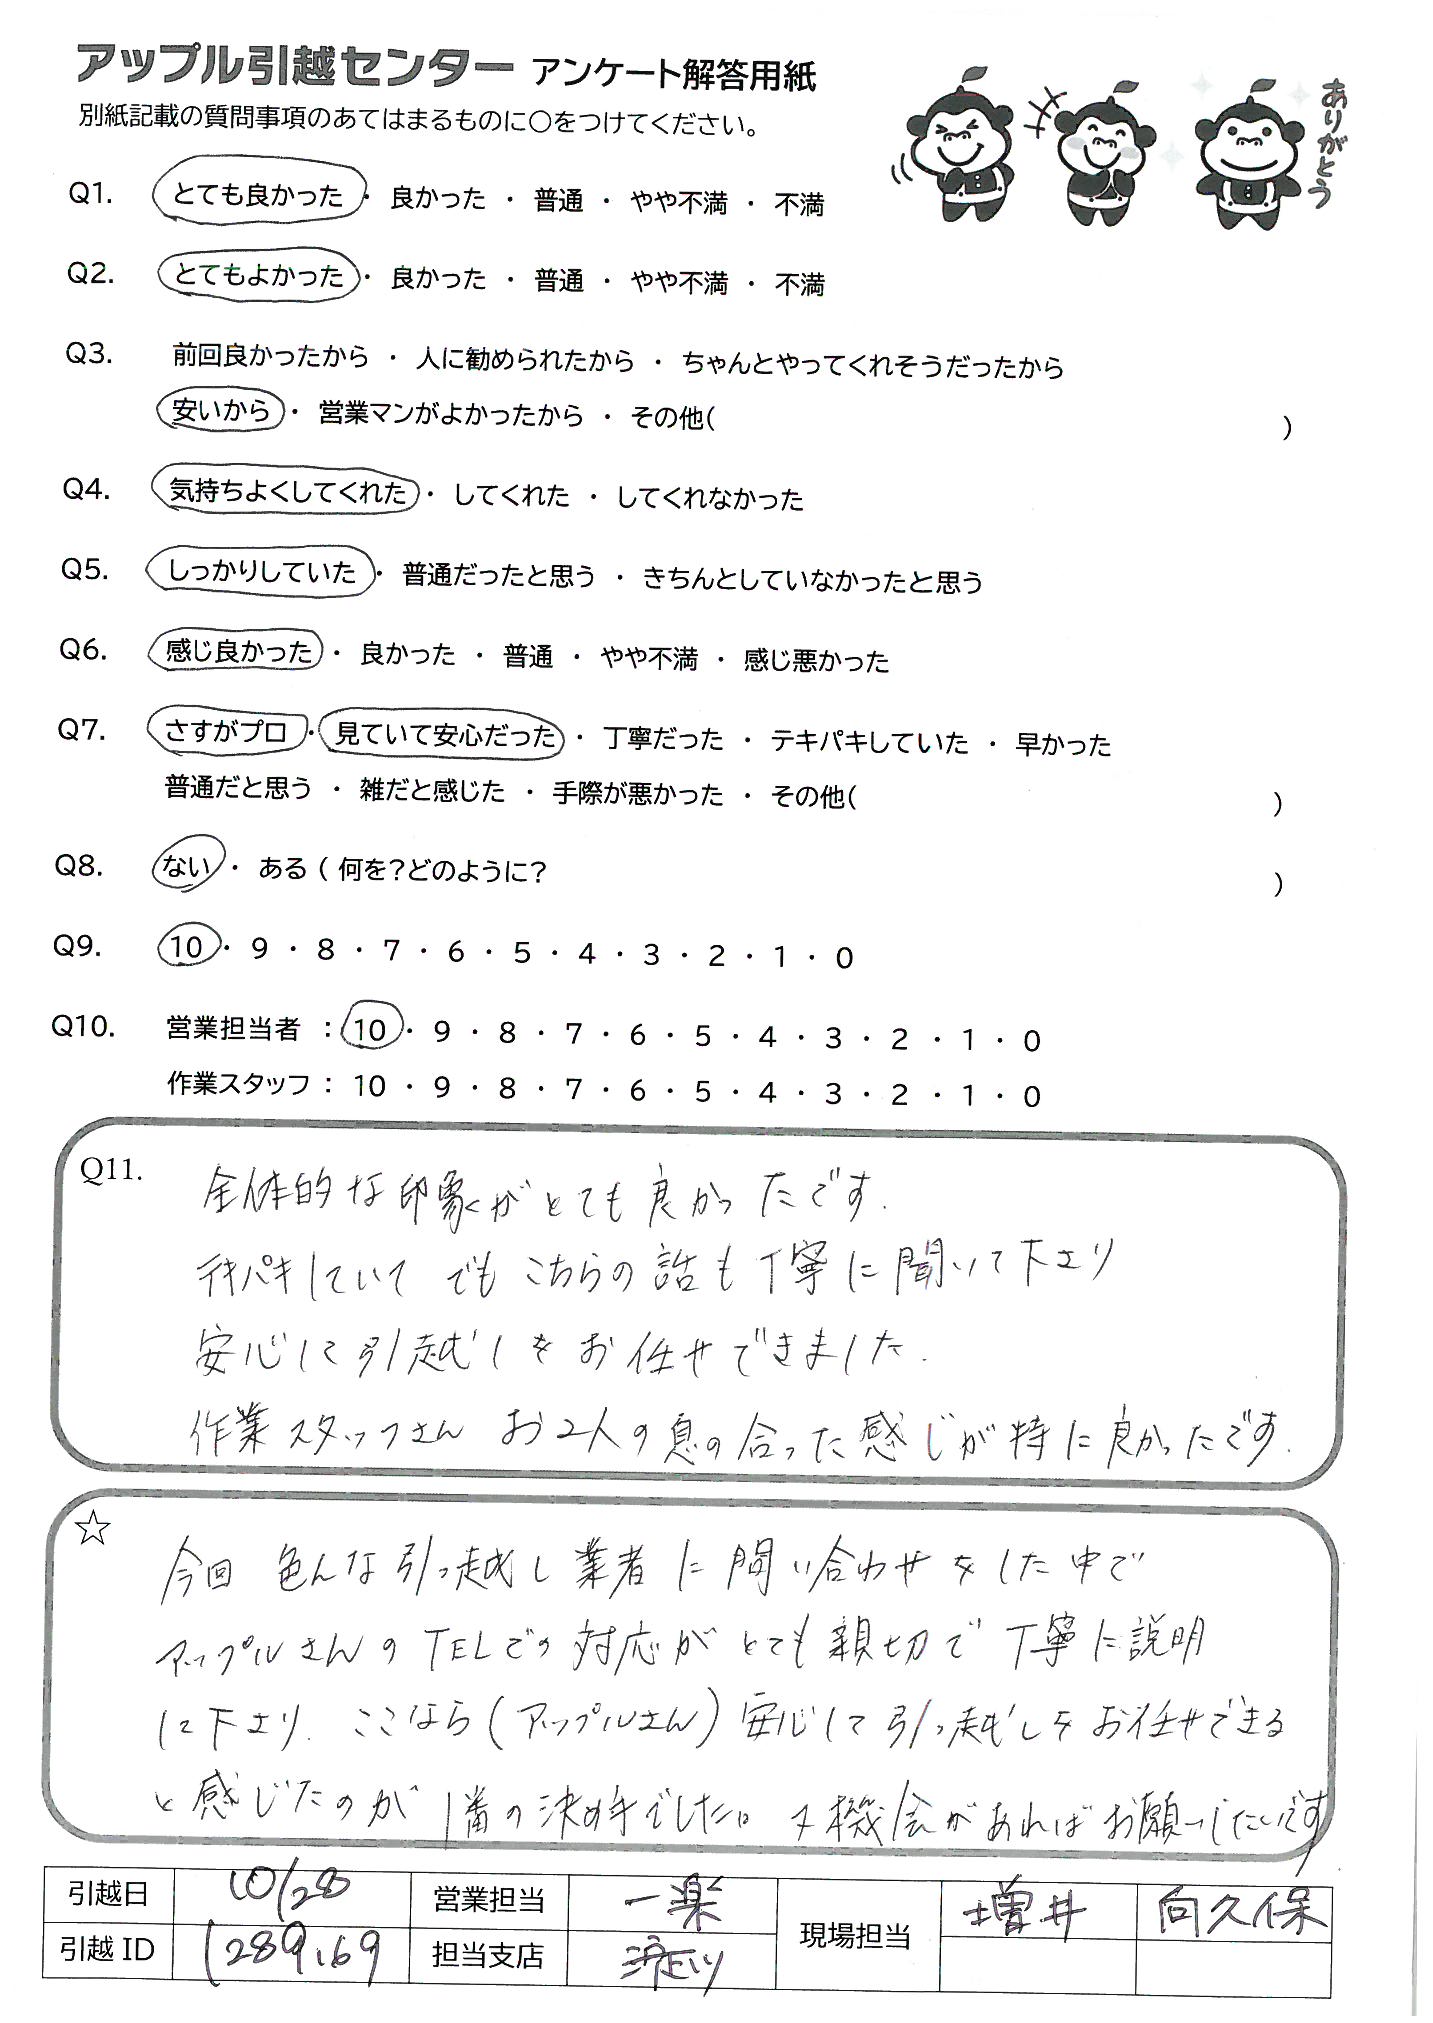 アップル引越センター アンケート解答用紙
別紙記載の質問事項のあてはまるものに〇をつけてください。
ありがとう
Q1. とても良かった ・ 良かった ・ 普通 ・ やや不満 ・ 不満
Q2. とてもよかった ・ 良かった ・ 普通 ・ やや不満 ・ 不満
Q3. 前回良かったから ・ 人に勧められたから ・ ちゃんとやってくれそうだったから
安いから ・ 営業マンがよかったから ・ その他( )
Q4. 気持ちよくしてくれた ・ してくれた ・ してくれなかった
Q5. しっかりしていた ・ 普通だったと思う ・ きちんとしていなかったと思う
Q6. 感じ良かった ・ 良かった ・ 普通 ・ やや不満 ・ 感じ悪かった
Q7. さすがプロ ・ 見ていて安心だった ・ 丁寧だった ・ テキパキしていた ・ 早かった
普通だと思う ・ 雑だと感じた ・ 手際が悪かった ・ その他( )
Q8. ない ・ ある ( 何を?どのように? )
Q9. 10 ・ 9 ・ 8 ・ 7 ・ 6 ・ 5 ・ 4 ・ 3 ・ 2 ・ 1 ・ 0
Q10. 営業担当者 : 10 ・ 9 ・ 8 ・ 7 ・ 6 ・ 5 ・ 4 ・ 3 ・ 2 ・ 1 ・ 0
作業スタッフ : 10 ・ 9 ・ 8 ・ 7 ・ 6 ・ 5 ・ 4 ・ 3 ・ 2 ・ 1 ・ 0
Q11. 全体的な印象がとても良かったです.
テキパキしていて でもこちらの話も丁寧に聞いて下さり
安心して引越しをお任せできました.
作業スタッフさん お2人の息の合った感じが特に良かったです.
☆ 今回 色んな引っ越し業者に問い合わせをした中で
アップルさんのTELでの対応がとても親切で丁寧に説明
して下さり. ここなら(アップルさん)安心して引っ越しをお任せできる
と感じたのが1番の決め手でした。又機会があればお願いしたいです
引越日 10/28 営業担当 一楽 現場担当 増井 向久保
引越ID 1289169 担当支店 淀川